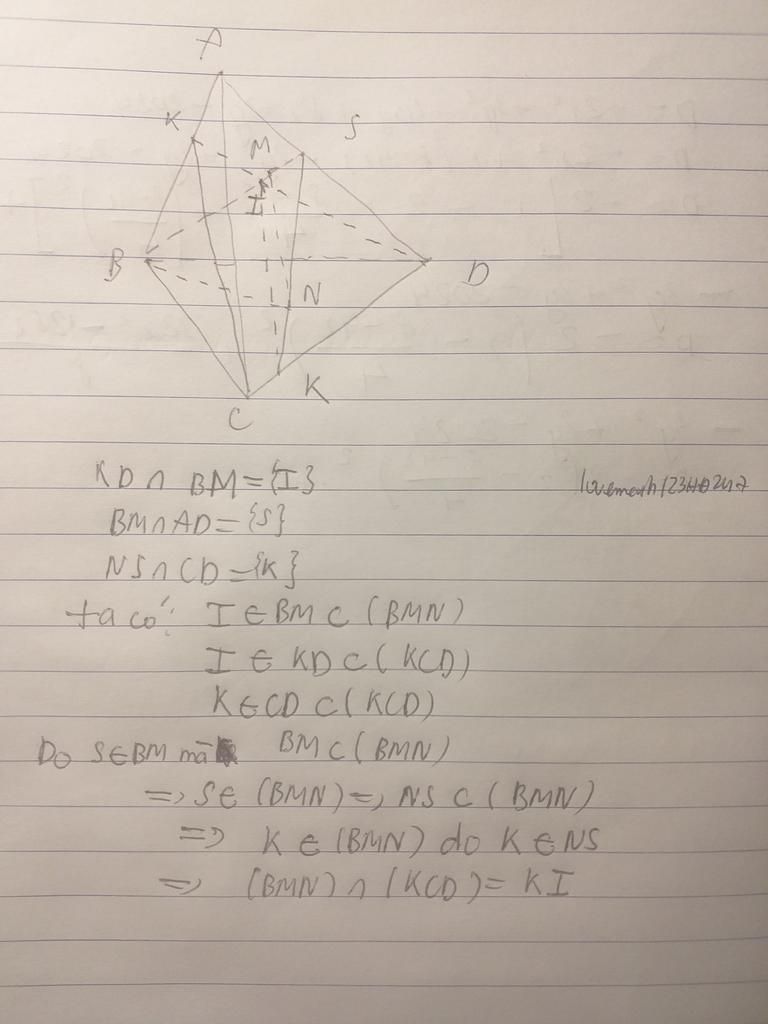 A
K
S
M
I
B
D
N
K
C
KD ∩ BM = {I}
BM ∩ AD = {S}
NS ∩ CD = {K}
ta có: I ∈ BM ⊂ (BMN)
I ∈ KD ⊂ (KCD)
K ∈ CD ⊂ (KCD)
Do S ∈ BM mà BM ⊂ (BMN)
=> S ∈ (BMN) => NS ⊂ (BMN)
=> K ∈ (BMN) do K ∈ NS
=> (BMN) ∩ (KCD) = KI